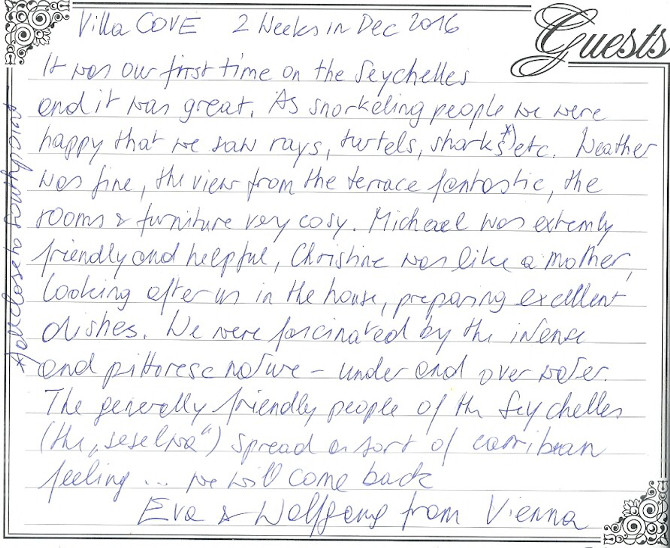 Villa COVE 2 Weeks in Dec 2016
Guests
It was our first time on the Seychelles
and it was great. As snorkeling people we were
happy that we saw rays, turtels, sharks*) etc. Weather
was fine, the view from the terrace fantastic, the
rooms & furniture very cosy. Michael was extremly
friendly and helpful, Christine was like a mother,
looking after us in the house, preparing excellent
dishes. We were fascinated by the intense
and pittoresc nature – under and over water.
The generally friendly people of the Seychelles
(the „seselwa“) spread a sort of carribean
feeling ... we will come back
Eva & Wolfgang from Vienna
*) all close to